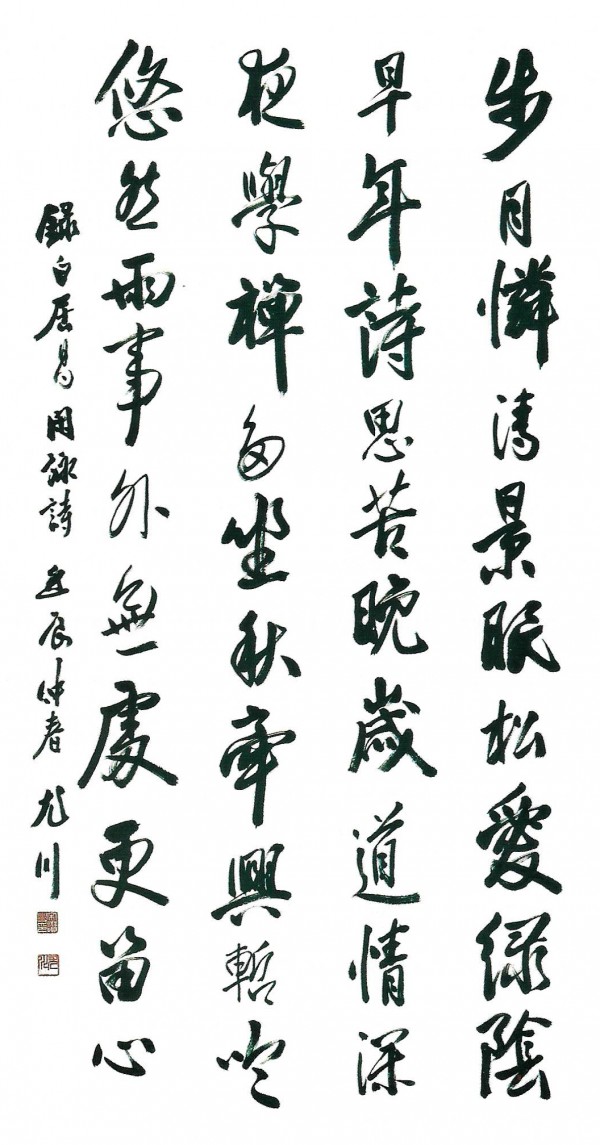 步月憐清景眠松愛綠陰
早年詩思苦晚歲道情深
夜學禪多坐秋牽興暫吟
悠然兩事外無處更留心
錄白居易閑詠詩 辰仲春 川